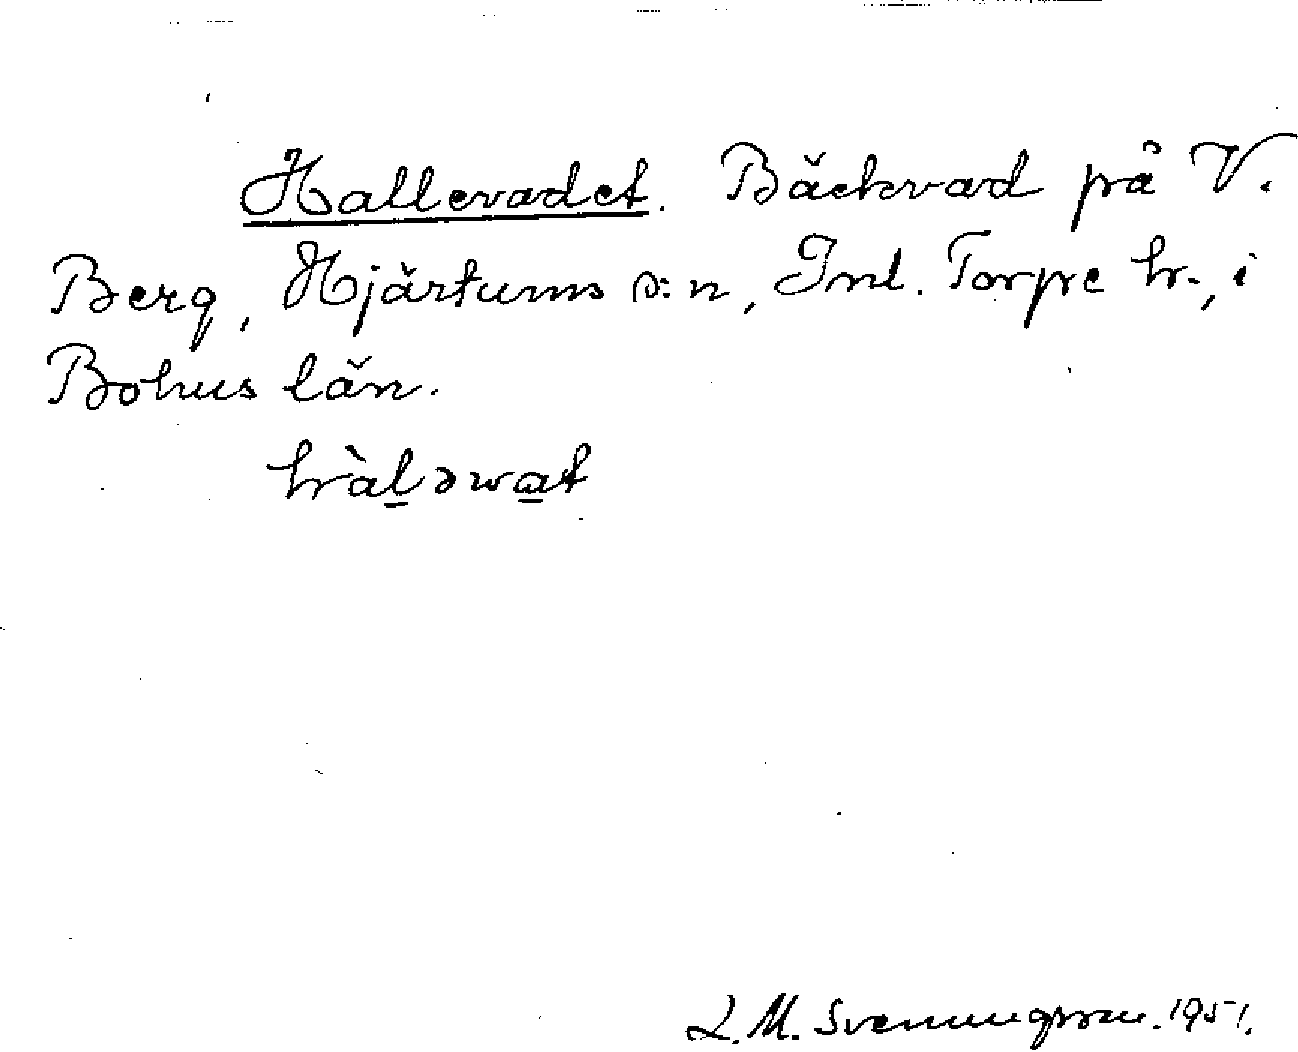 Hallevadet. Bäckvad på V.
Berg, Hjärtums s:n, Inl. Torpe hr., i
Bohus län.
hàl̲əwa̲t
L.M. Svenungsson. 1951.